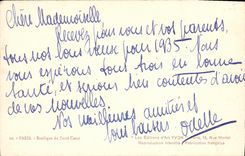 Chère Mademoiselle,
Recevez pour vous et vos parents,
tous nos bons vœux pour 1935. Nous
vous espérons tous trois en bonne
santé, et serions bien contentes d'avoir
de vos nouvelles.
Nos meilleures amitiés et
bons baisers Odette
PARIS. - Basilique du Sacré-Cœur
Les Editions d'Art YVON
Reproduction interdite